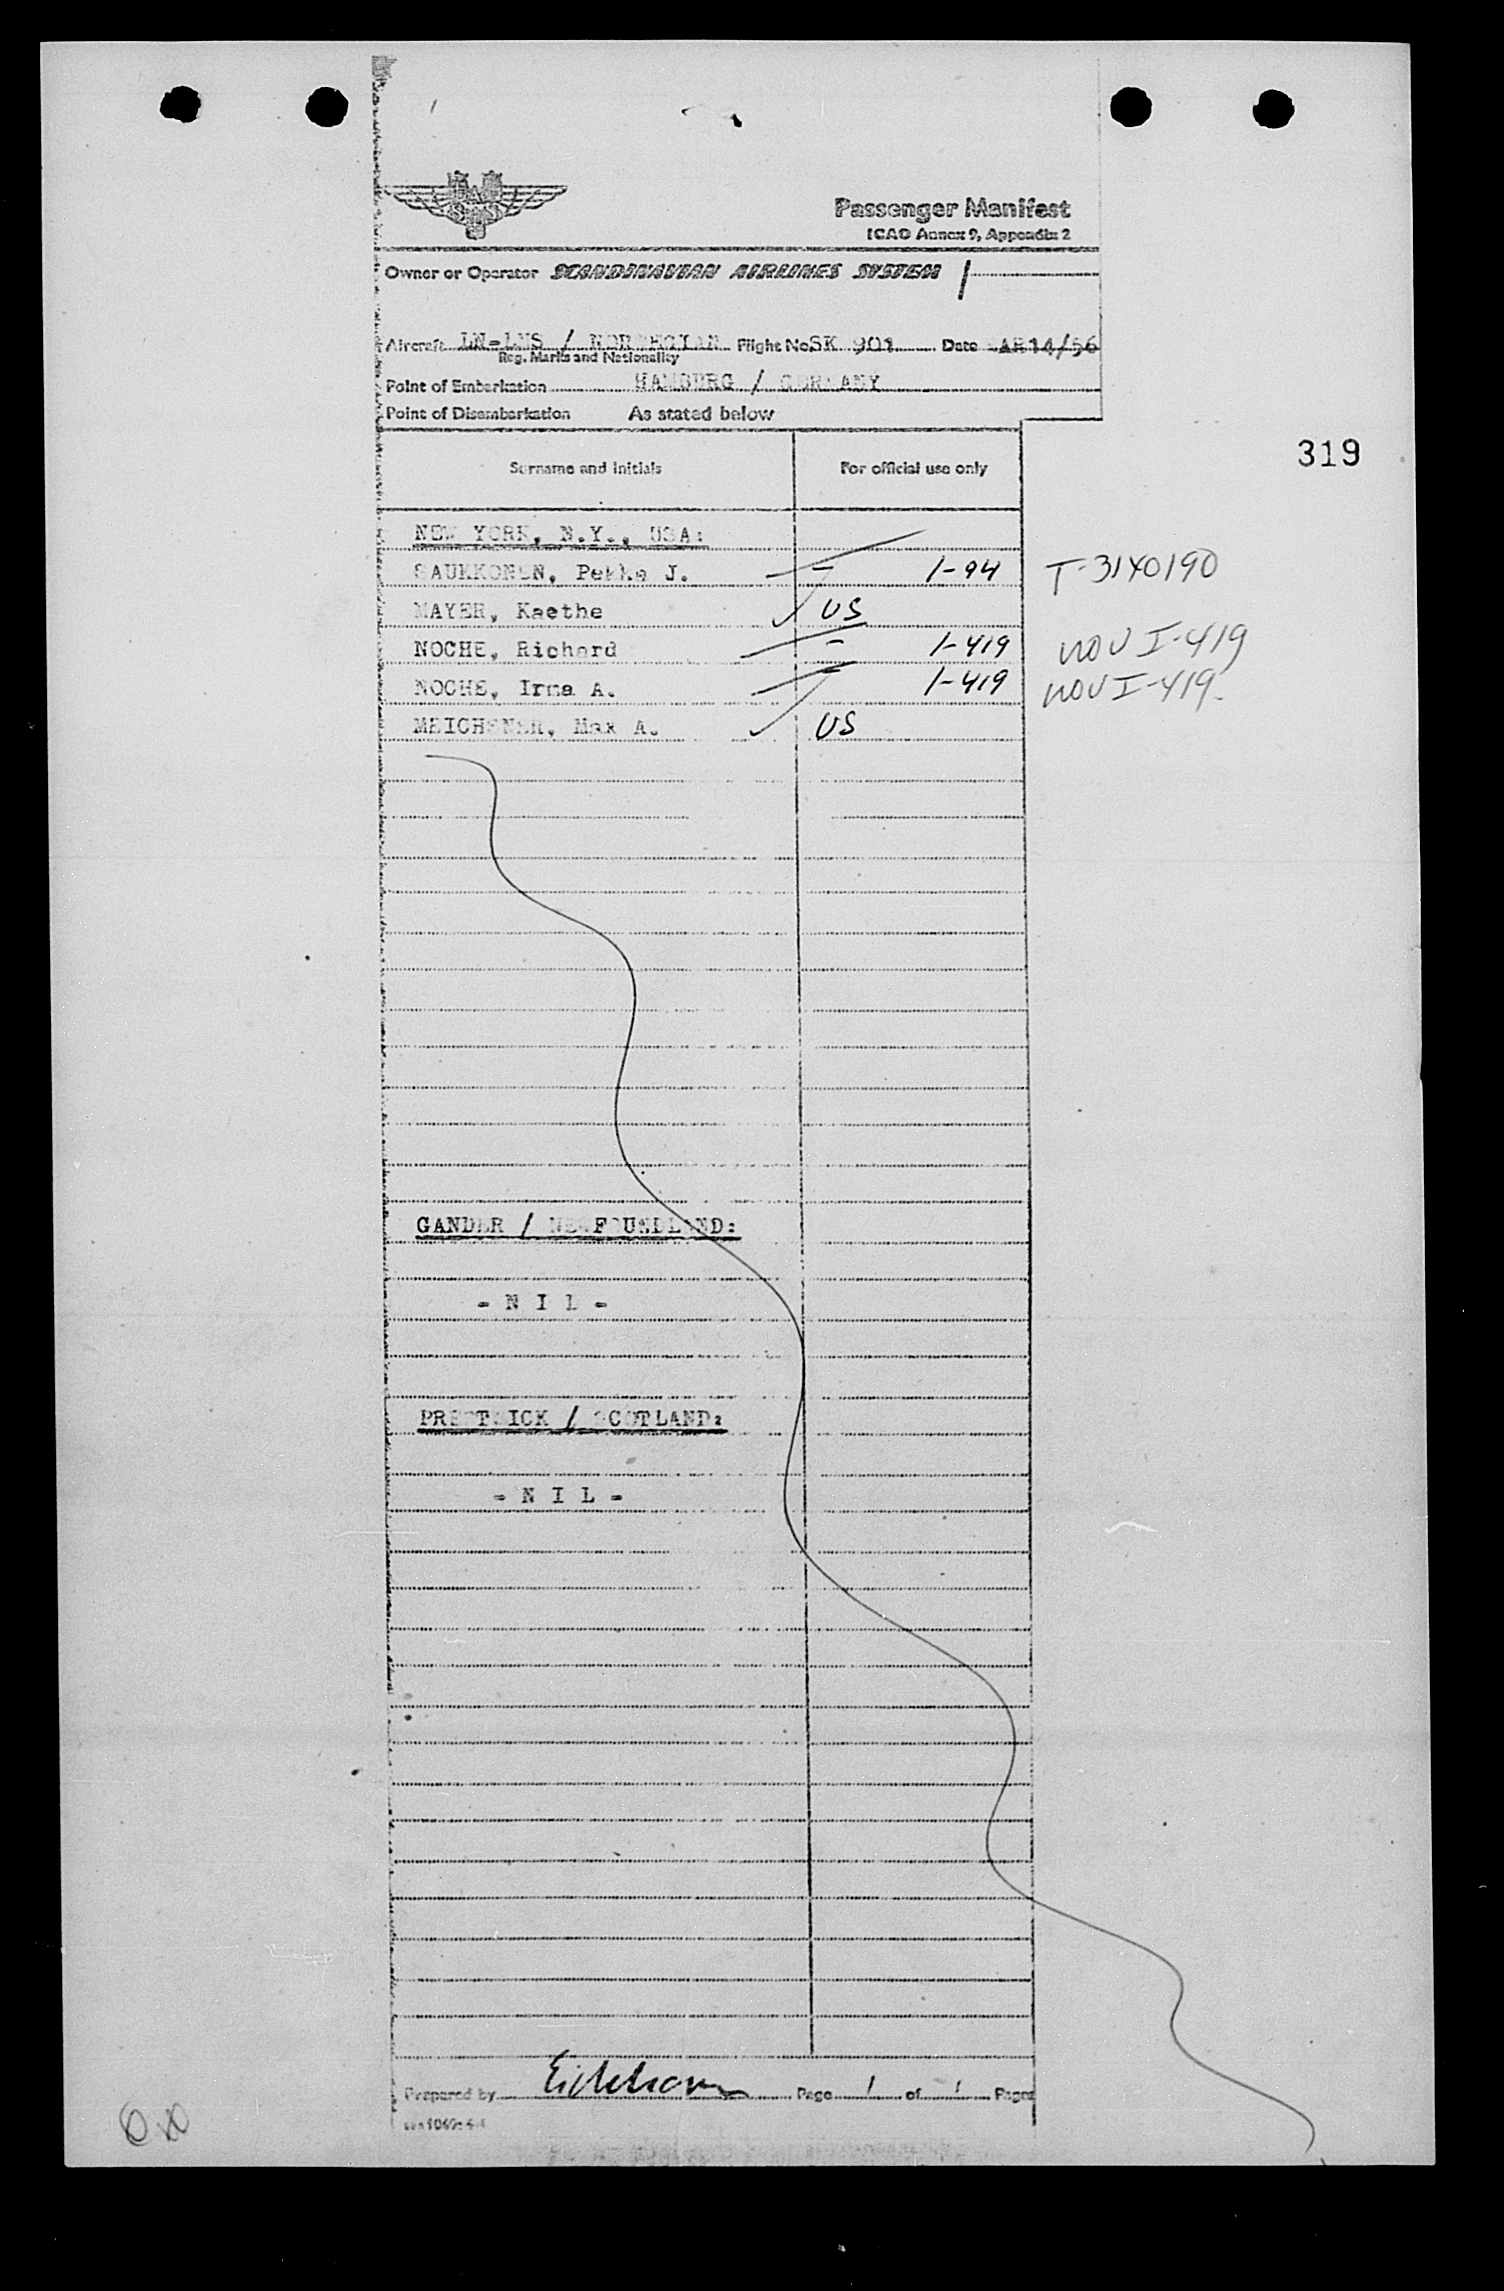 SAS
Passenger Manifest
ICAO Annex 9, Appendix 2
Owner or Operator SCANDINAVIAN AIRLINES SYSTEM
Aircraft LN-LMS / NORWEGIAN Flight No. SK 901 Date MAR 14/56
Reg. Marks and Nationality
Point of Embarkation HAMBURG / GERMANY
Point of Disembarkation As stated below
319
Surname and initials For official use only
NEW YORK, N.Y., USA:
SAUKKONEN, Pekka J. - 1-94 T-3140190
MAYER, Kaethe US
NOCHE, Richard - 1-419 nov I-419
NOCHE, Irma A. - 1-419 nov I-419
MEICHENER, Max A. US
GANDER / NEWFOUNDLAND:
- N I L -
PRESTWICK / SCOTLAND:
- N I L -
Prepared by Page 1 of 1 Pages